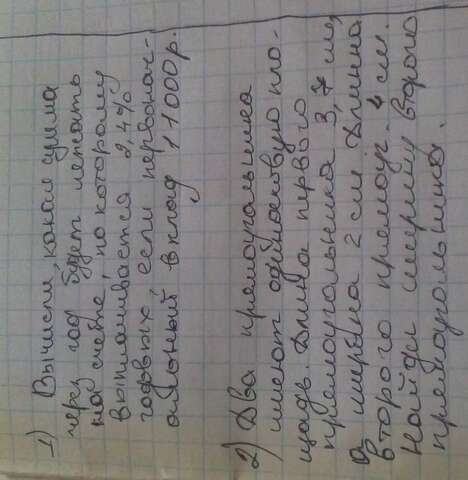 1) Вычисли, какая сумма
через год будет лежать
на счёте, по которому
выплачивается 2,4%
годовых, если первонач-
альный вклад 11000 р.
2) Два прямоугольника
имеют одинаковую пло-
щадь. Длина первого
прямоугольника 3,7 см,
а ширина 2 см. Длинна
второго прямоуг. 4 см.
Найди ширину второго
прямоугольника.